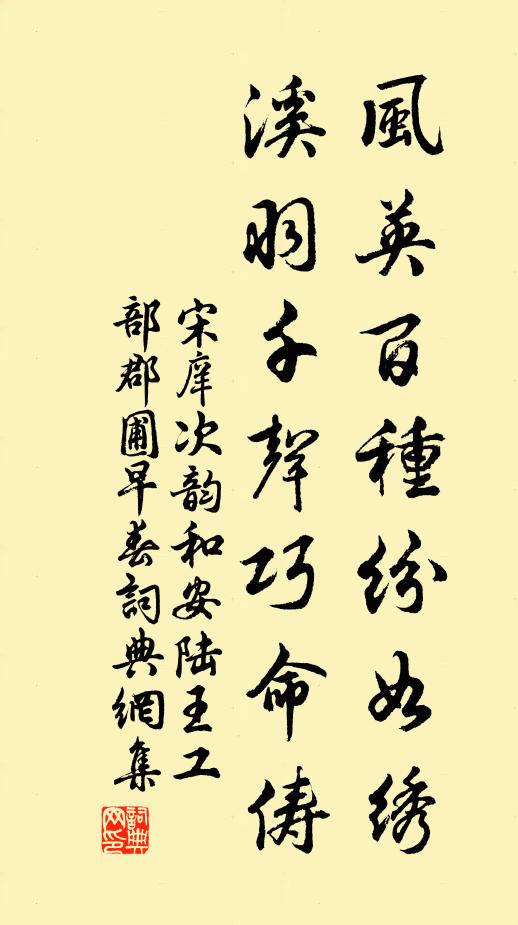 風英百種紛如綉
溪羽千聲巧命儔
宋庠次韵和安陆王工
部郡圃早春詞典網集
詞典
网印